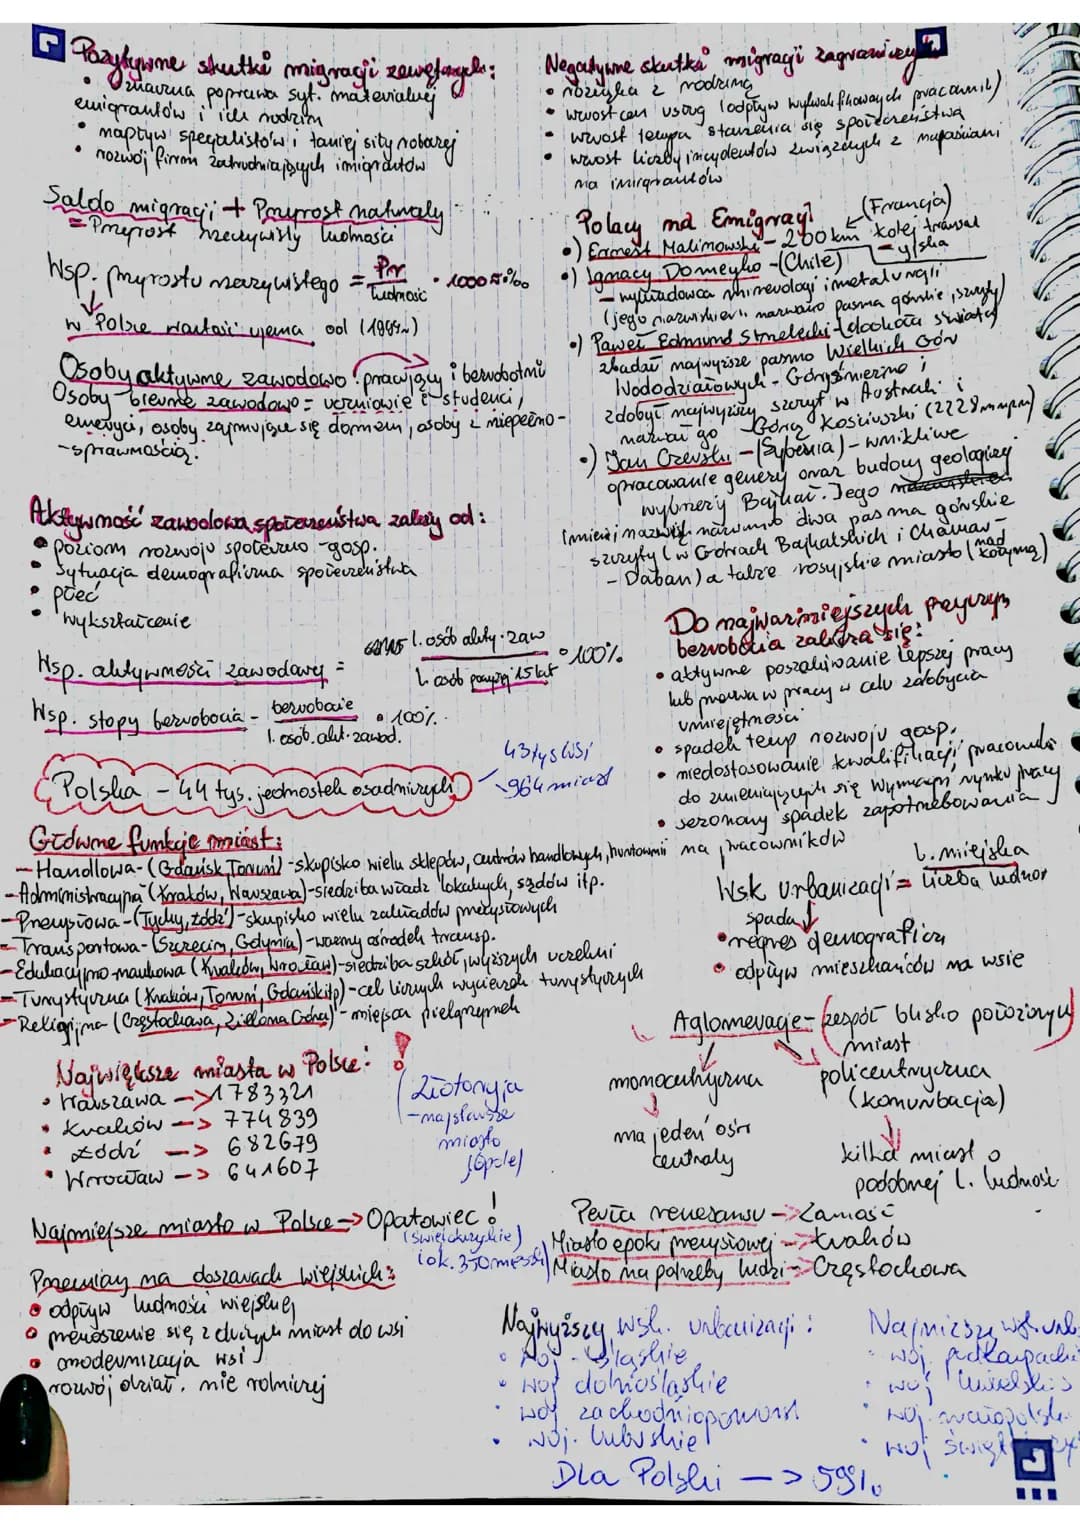 Pozytywne skutki migracji zewętrznych:
• znaczna poprawa syt. materialnej
emigrantów i ich rodzin
• napływ specjalistów i taniej siły roboczej
• rozwój firm zatrudniających imigrantów
Saldo migracji + Przyrost naturalny
= Przyrost rzeczywisty ludności
Wsp. przyrostu rzeczywistego = Prz / ludność · 1000 ‰
w Polsce wartość ujemna od (1999r.)
Osoby aktywne zawodowo: pracujący i bezrobotni
Osoby bierne zawodowo = uczniowie i studenci,
emeryci, osoby zajmujące się domem, osoby z niepełno-
-sprawnością.
Aktywność zawodowa społeczeństwa zależy od:
• poziom rozwoju społeczno-gosp.
• sytuacja demograficzna społeczeństwa
• płeć
• wykształcenie
Wsp. aktywności zawodowej = l. osób akty. zaw / l. osób powyżej 15 lat · 100%
Wsp. stopy bezrobocia - bezrobocie / l. osób. akt. zawod. · 100%
Polska - 44 tys. jednostek osadniczych
43 tys wsi
964 miast
Główne funkcje miast:
- Handlowa - (Gdańsk, Toruń) - skupisko wielu sklepów, centrów handlowych, hurtowni
- Administracyjna (Kraków, Warszawa) - siedziba władz lokalnych, sądów itp.
- Przemysłowa - (Tychy, Łódź) - skupisko wielu zakładów przemysłowych
- Transportowa - (Szczecin, Gdynia) - ważny ośrodek transp.
- Edukacyjno-naukowa (Kraków, Wrocław) - siedziba szkół, wyższych uczelni
- Turystyczna (Kraków, Toruń, Gdańsk itp) - cel licznych wycieczek turystycznych
- Religijna (Częstochowa, Zielona Góra) - miejsca pielgrzymek
Największe miasta w Polsce:
• Warszawa -> 1783321
• Kraków -> 774839
• Łódź -> 682679
• Wrocław -> 641607
! Złotoryja
- najstarsze
miasto
(Opole)
Najmniejsze miasto w Polsce -> Opatowiec!
(świętokrzyskie)
(ok. 350 mieszk)
Przemiany na obszarach wiejskich:
• odpływ ludności wiejskiej
• przenoszenie się z dużych miast do wsi
• modernizacja wsi
rozwój dział. nie rolniczej
Negatywne skutki migracji zagranicznych
• rozłąka z rodziną
• wzrost cen usług (odpływ wykwalifikowanych pracownik)
• wzrost tempa starzenia się społeczeństwa
• wzrost liczby incydentów związanych z napaściami
na imigrantów
Polacy na Emigracji
(Francja)
•) Ernest Malinowski - 200 km kolej transal
•) Ignacy Domeyko - (Chile)
- wykładowca mineralogi i metalurgii
(jego nazwiskiem nazwano pasma górskie, szczyty)
•) Paweł Edmund Strzelecki - (dookoła świata)
zbadał najwyższe pasmo Wielkich Gór
Wododziałowych - Góry Śnieżne i
zdobył najwyższy szczyt w Australi i
nazwał go Górą Kościuszki (2228 m n.p.m)
•) Jan Czerski - (Syberia) - wnikliwe
opracowanie genezy oraz budowy geologicznej
wybrzeży Bajkał. Jego
imieniem nazwano dwa pasma górskie
szczyty (w Górach Bajkalskich i Chamar-
-Daban) a także rosyjskie miasto (nad Kołymą)
Do najważniejszych przyczyn
bezrobocia zalicza się:
• aktywne poszukiwanie lepszej pracy
lub przerwa w pracy w celu zdobycia
umiejętności
• spadek temp rozwoju gosp.
• niedostosowanie kwalifikacji pracownika
do zmieniających się wymagań rynku pracy
• sezonowy spadek zapotrzebowania
na pracowników
Wsk urbanizacji = L. miejska / Liczba ludnoś
spada
• regres demograficzn
• odpływ mieszkańców na wsie
Aglomeracje - (zespół blisko położonych
miast)
monocentryczna
ma jeden ośr.
centralny
policentryczna
(konurbacja)
kilka miast o
podobnej l. ludnośc
Perła renesansu -> Zamość
Miasto epoki przemysłowej -> Kraków
Miasto na potrzeby ludzi -> Częstochowa
Najwyższy wsk. urbanizacji:
• woj - śląskie
• woj dolnośląskie
• woj zachodniopomorsk
• woj. lubuskie
Najniższy wsk. urb
• woj. podkarpackie
• woj. lubelskie
• woj. małopolskie
• woj święt
Dla Polski -> 59%